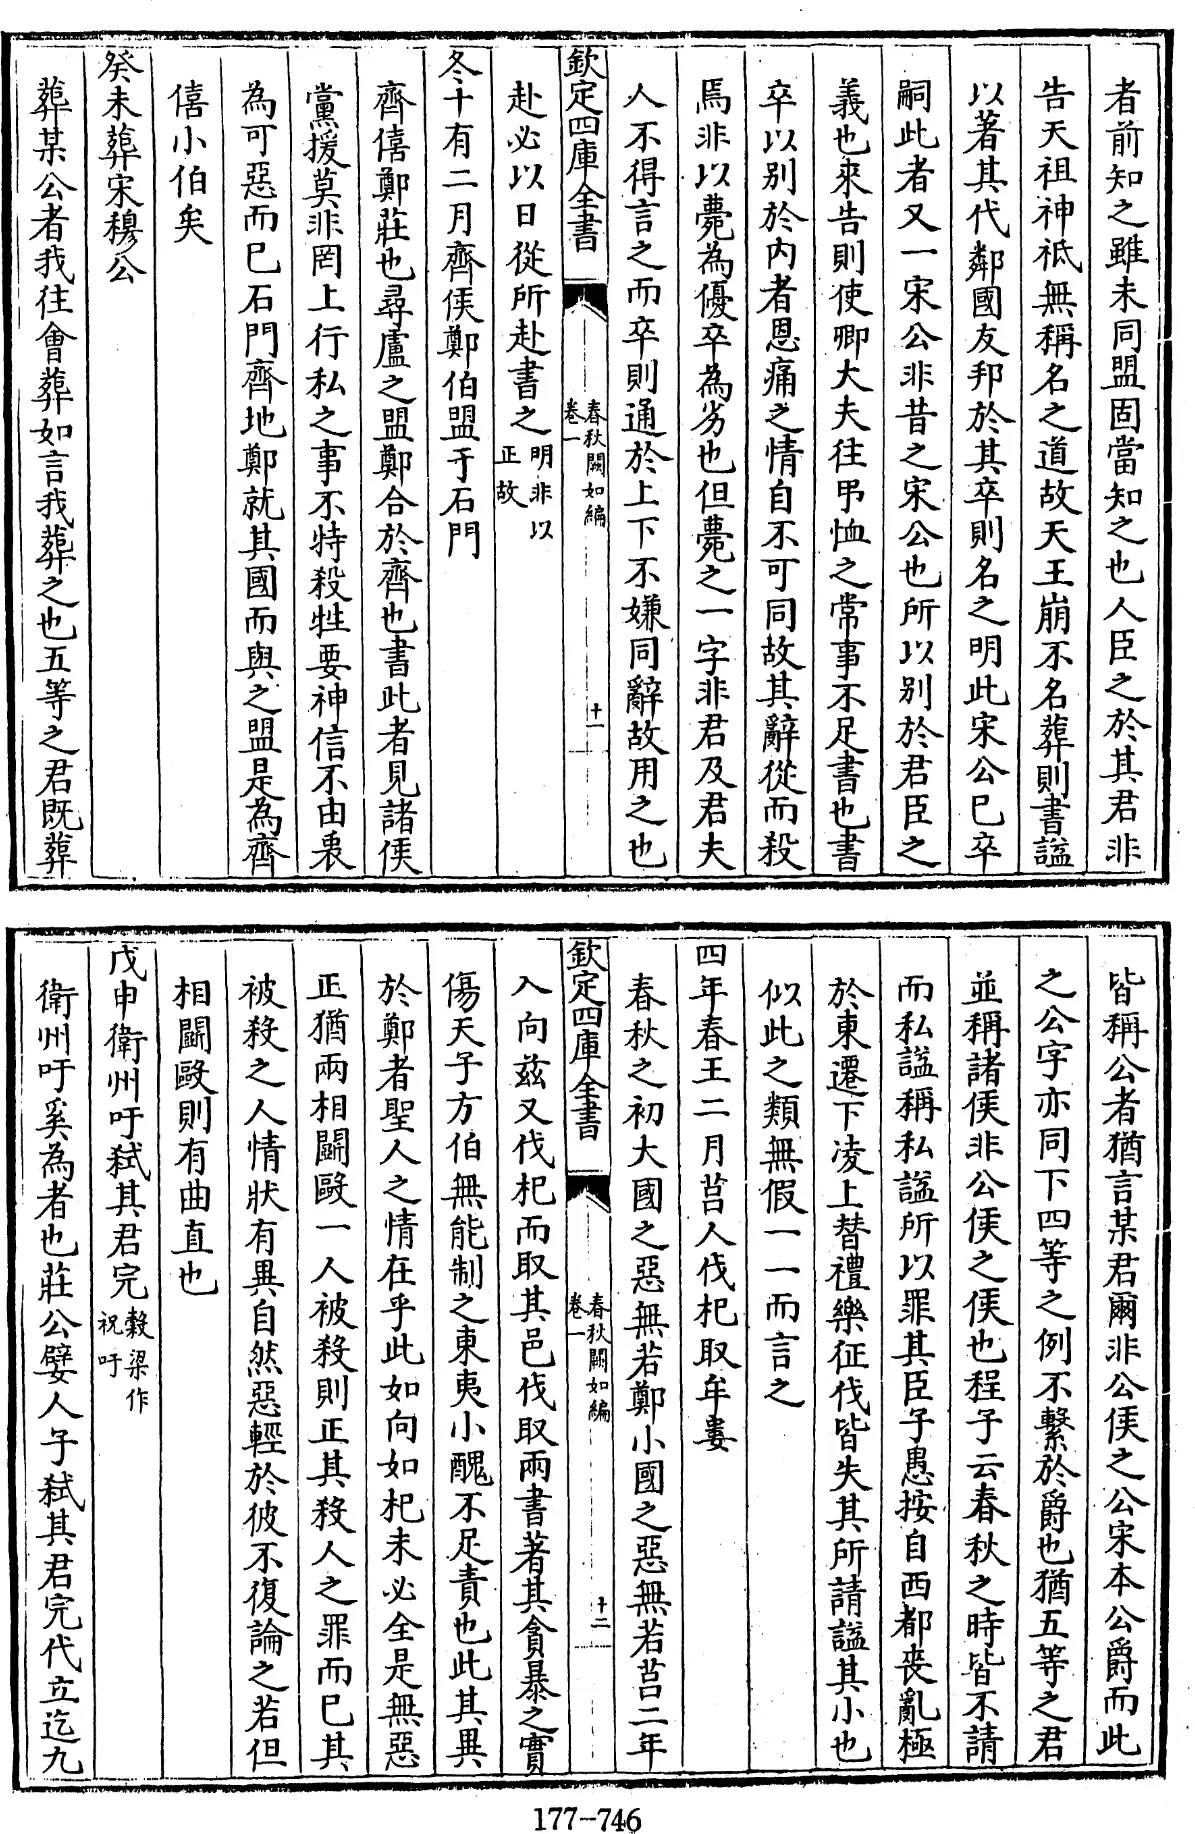 者前知之雖未同盟固當知之也人臣之於其君非
告天祖神祗無稱名之道故天王崩不名葬則書諡
以著其代鄰國友邦於其卒則名之明此宋公巳卒
嗣此者又一宋公非昔之宋公也所以別於君臣之
義也來告則使卿大夫往弔恤之常事不足書也書
卒以別於內者恩痛之情自不可同故其辭從而殺
焉非以薨為優卒為劣也但薨之一字非君及君夫
人不得言之而卒則通於上下不嫌同辭故用之也
欽定四庫全書
春秋闕如編
卷一
十一
赴必以日從所赴書之明非以
正故
冬十有二月齊侯鄭伯盟于石門
齊僖鄭莊也尋盧之盟鄭合於齊也書此者見諸侯
黨援莫非罔上行私之事不特殺牲要神信不由衷
為可惡而巳石門齊地鄭就其國而與之盟是為齊
僖小伯矣
癸未葬宋穆公
葬某公者我往會葬如言我葬之也五等之君既葬
皆稱公者猶言某君爾非公侯之公宋本公爵而此
之公字亦同下四等之例不繫於爵也猶五等之君
並稱諸侯非公侯之侯也程子云春秋之時皆不請
而私諡稱私諡所以罪其臣子愚按自西都喪亂極
於東遷下凌上替禮樂征伐皆失其所請諡其小也
似此之類無假一一而言之
四年春王二月莒人伐杞取牟婁
春秋之初大國之惡無若鄭小國之惡無若莒二年
欽定四庫全書
春秋闕如編
卷一
十二
入向茲又伐杞而取其邑伐取兩書著其貪暴之實
傷天子方伯無能制之東夷小醜不足責也此其異
於鄭者聖人之情在乎此如向如杞未必全是無惡
正猶兩相鬬毆一人被殺則正其殺人之罪而巳其
被殺之人情狀有異自然惡輕於彼不復論之若但
相鬬毆則有曲直也
戊申衛州吁弒其君完穀梁作
祝吁
衛州吁奚為者也莊公嬖人子弒其君完代立迄九
177-746